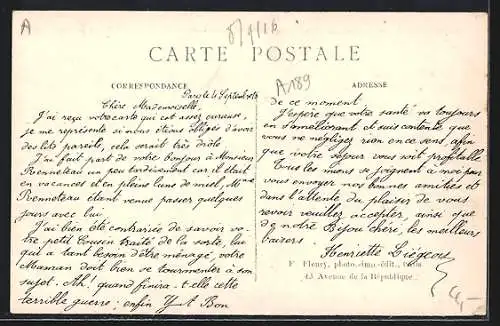 A
8/9/16
CARTE POSTALE
CORRESPONDANCE
ADRESSE
A189
Paris le 4 Septembre
Chère Mademoiselle,
J'ai reçu votre carte qui est assez curieuse,
je me représente si nous étions obligés d'avoir
des lits pareils, cela serait très drôle
J'ai fait part de votre bonjour à Monsieur
Penneteau un peu tardivement car il était
en vacances et en pleine lune de miel, Mme
Penneteau étant venue passer quelques
jours avec lui
J'ai bien été contrariée de savoir vo-
tre petit Cousin traité de la sorte, lui
qui a tant besoin d'être ménagé, votre
Maman doit bien se tourmenter à son
sujet. Ah! quand finira-t-elle cette
terrible guerre; enfin Bon
de ce moment.
J'espère que votre santé va toujours
en s'améliorant et suis contente que
vous ne négligez rien en ce sens, afin
que votre séjour vous soit profitable
Tous les miens se joignent à moi pour
vous envoyer nos bonnes amitiés et
dans l'attente du plaisir de vous
revoir veuillez accepter, ainsi que
de notre Bijou chéri, les meilleurs
baisers.
Henriette Liégeois
F. Fleury, phot.-imp.-édit., Paris
43 Avenue de la République